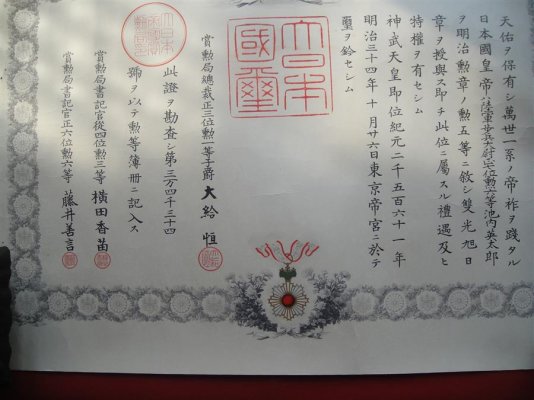 天佑ヲ保有シ萬世一系ノ帝祚ヲ踐タル
日本國皇帝ハ陸軍歩兵大尉正七位勲六等池内英太郎
ヲ明治勲章ノ勲五等ニ敘シ雙光旭日
章ヲ授與ス即チ此位ニ屬スル禮遇及ヒ
特權ヲ有セシム
神武天皇即位紀元二千五百六十一年
明治三十四年十月廿六日東京帝宮ニ於テ
璽ヲ鈐セシム
大日本
國璽
賞勲局總裁正三位勲一等子爵大給恒
此證ヲ勘査シ第三万四千三十四
號ヲ以テ勲等簿冊ニ記入ス
賞勲局書記官從四位勲三等横田香苗
賞勲局書記官正六位勲六等藤井善言